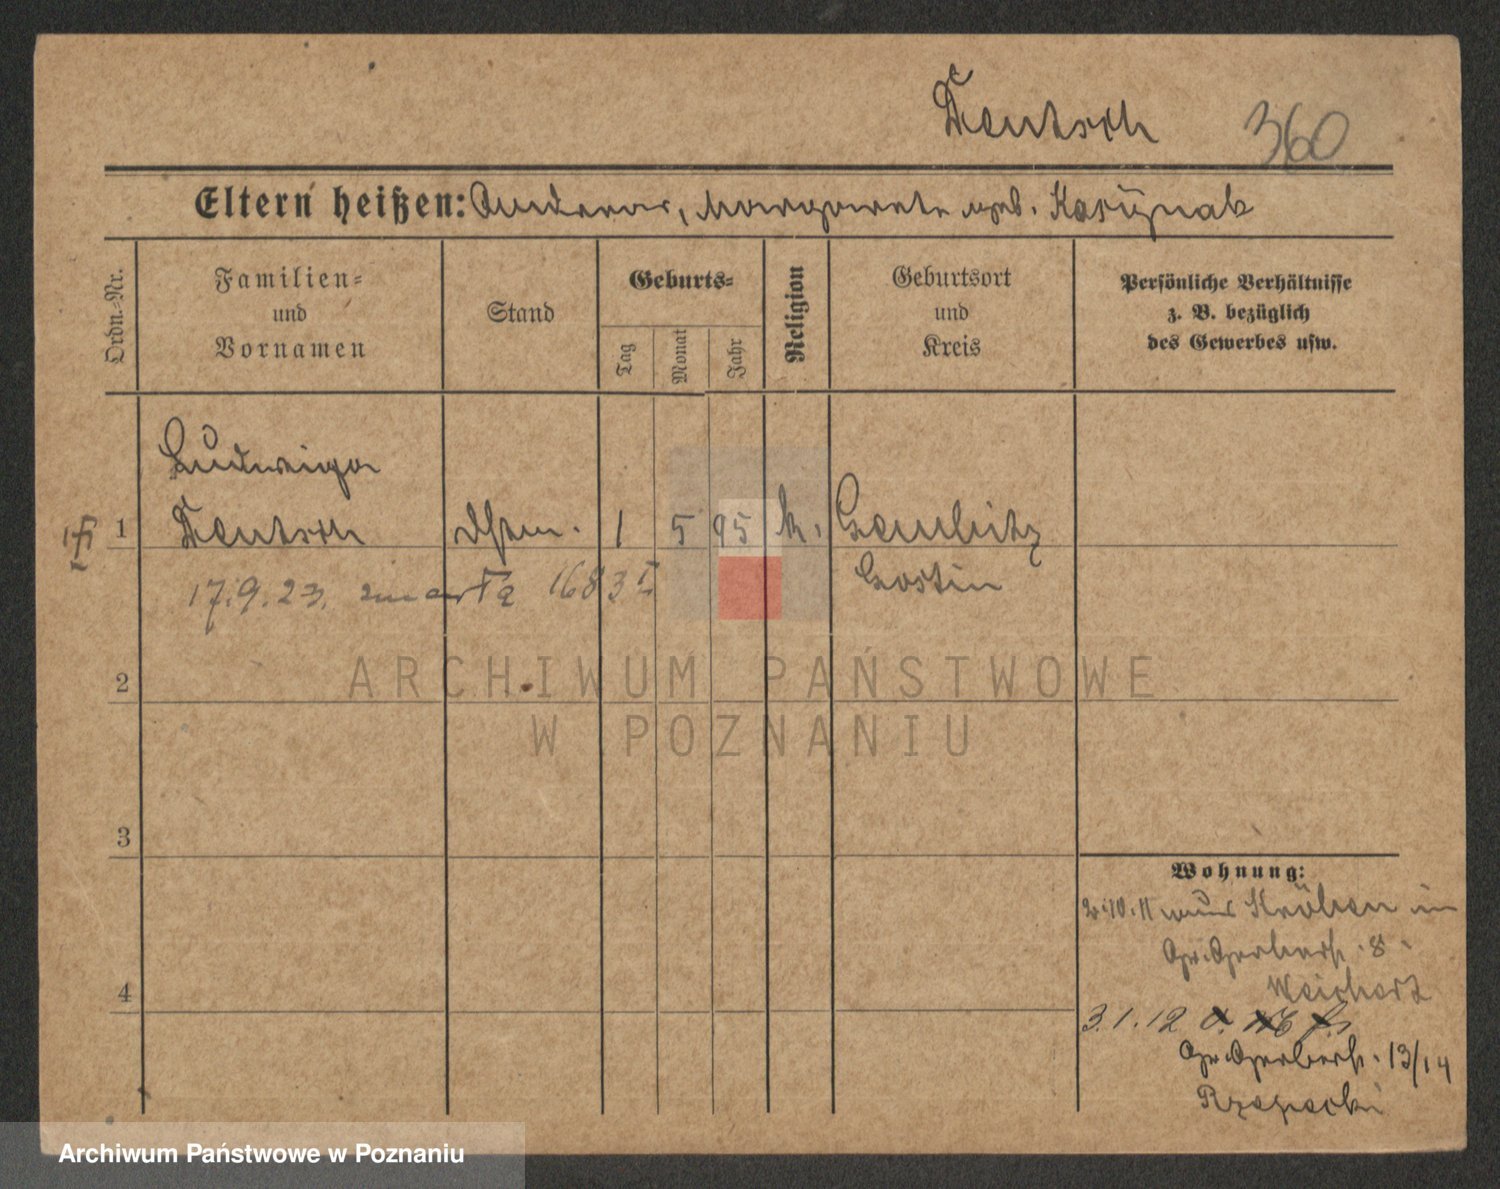 Deutsch 360
Eltern heißen: Andreas, Margarete geb. Kasiznak
Ordn.-Nr.
Familien-
und
Vornamen
Stand
Geburts-
Tag
Monat
Jahr
Religion
Geburtsort
und
Kreis
Persönliche Verhältnisse
z. B. bezüglich
des Gewerbes usw.
Ludwiga
1 Deutsch 1 5 95 k. Gembitz
Gostin
17.9.23. zmarła 1683
2
3
4
Wohnung:
2.10.11 aus Kröben in
Gr. Gerberst. 8.
Weichert
3.1.12
Gr. Gerberst. 13/14
Rzepecki
ARCHIWUM PAŃSTWOWE
W POZNANIU
Archiwum Państwowe w Poznaniu